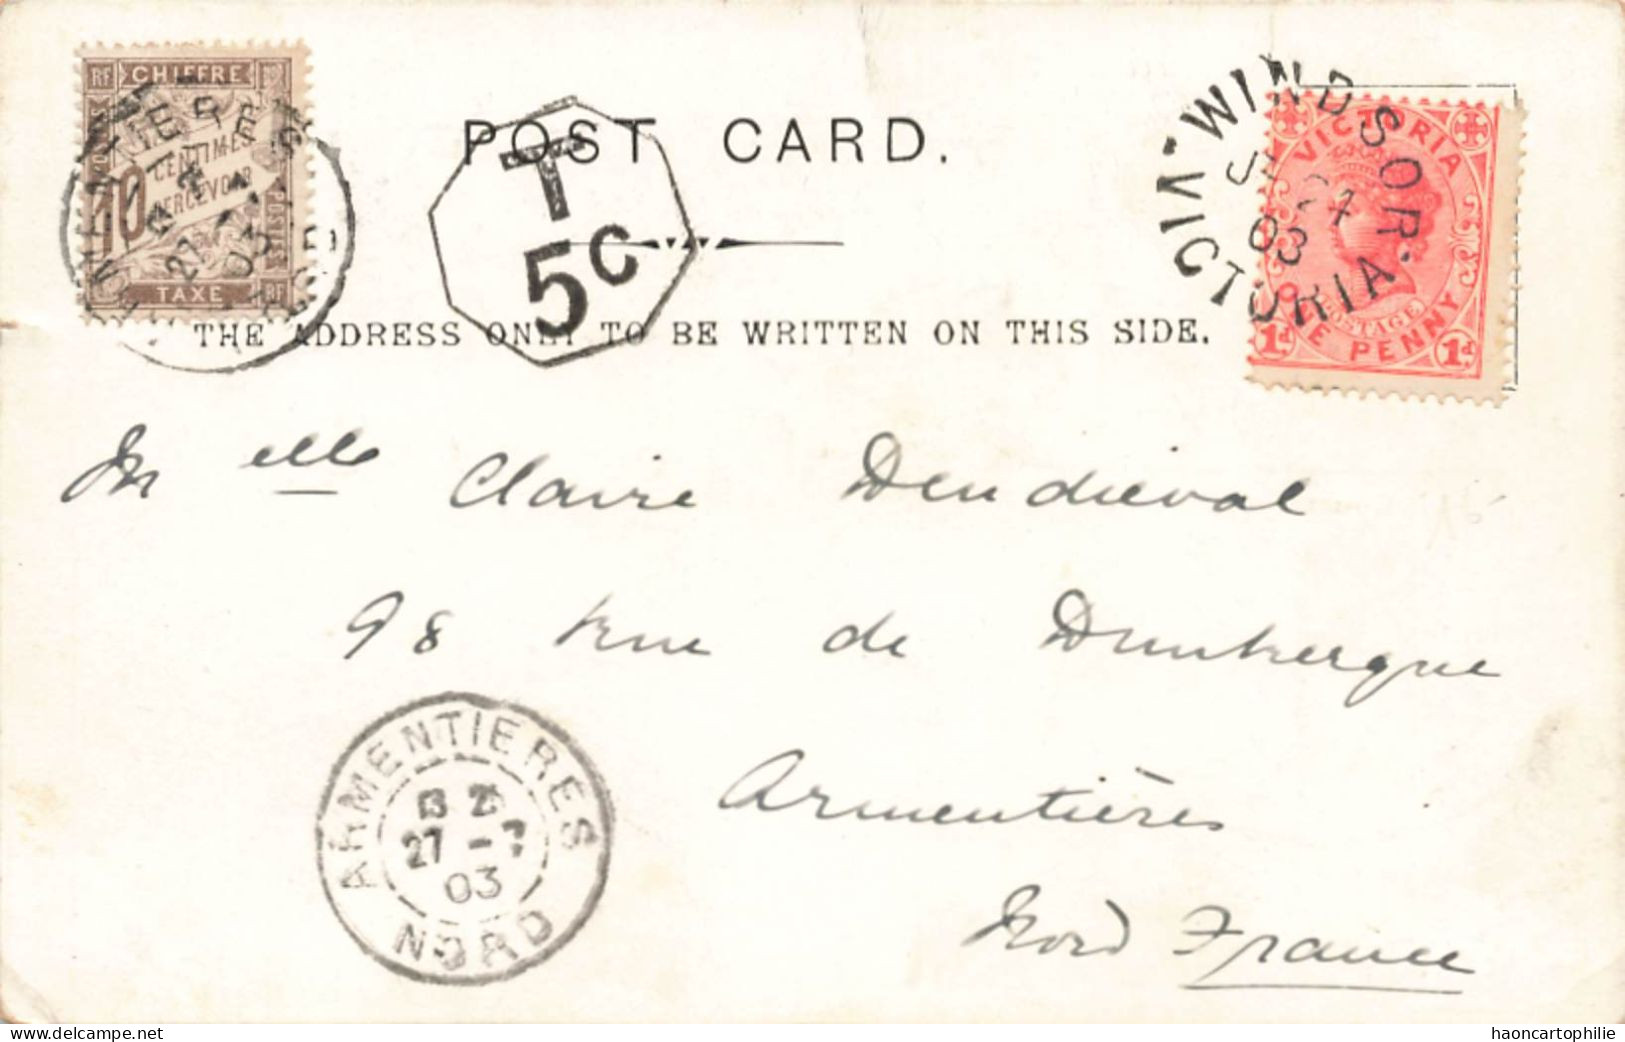 RF CHIFFRE
10 CENTIMES
PERCEVOIR
TAXE RF
POST CARD.
T
5c
WINDSOR.
VICTORIA.
03
VICTORIA
POSTAGE
ONE PENNY
1d 1d
THE ADDRESS ONLY TO BE WRITTEN ON THIS SIDE.
Melle Claire Dendieval
98 Rue de Dunkerque
Armentières
Nord France
ARMENTIERES
27 -7
03
NORD
haoncartophilie